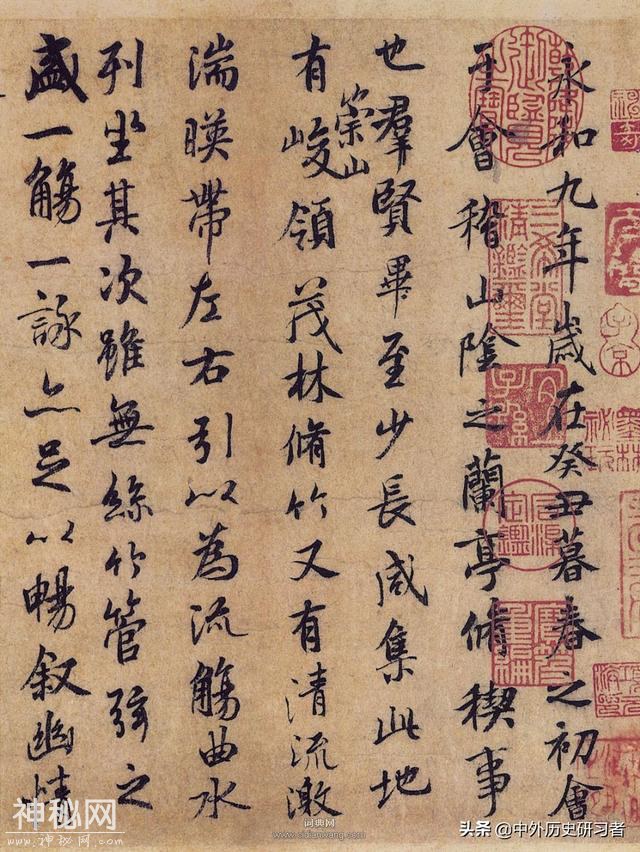 永和九年歲在癸丑暮春之初會
于會稽山陰之蘭亭脩稧事
也羣賢畢至少長咸集此地
有崇山峻領茂林脩竹又有清流激
湍暎帶左右引以為流觴曲水
列坐其次雖無絲竹管弦之
盛一觴一詠亦足以暢叙幽情
三希堂精鑑璽
宜子孫
神秘网
词典网
www.cidianwang.com
头条 @中外历史研习者